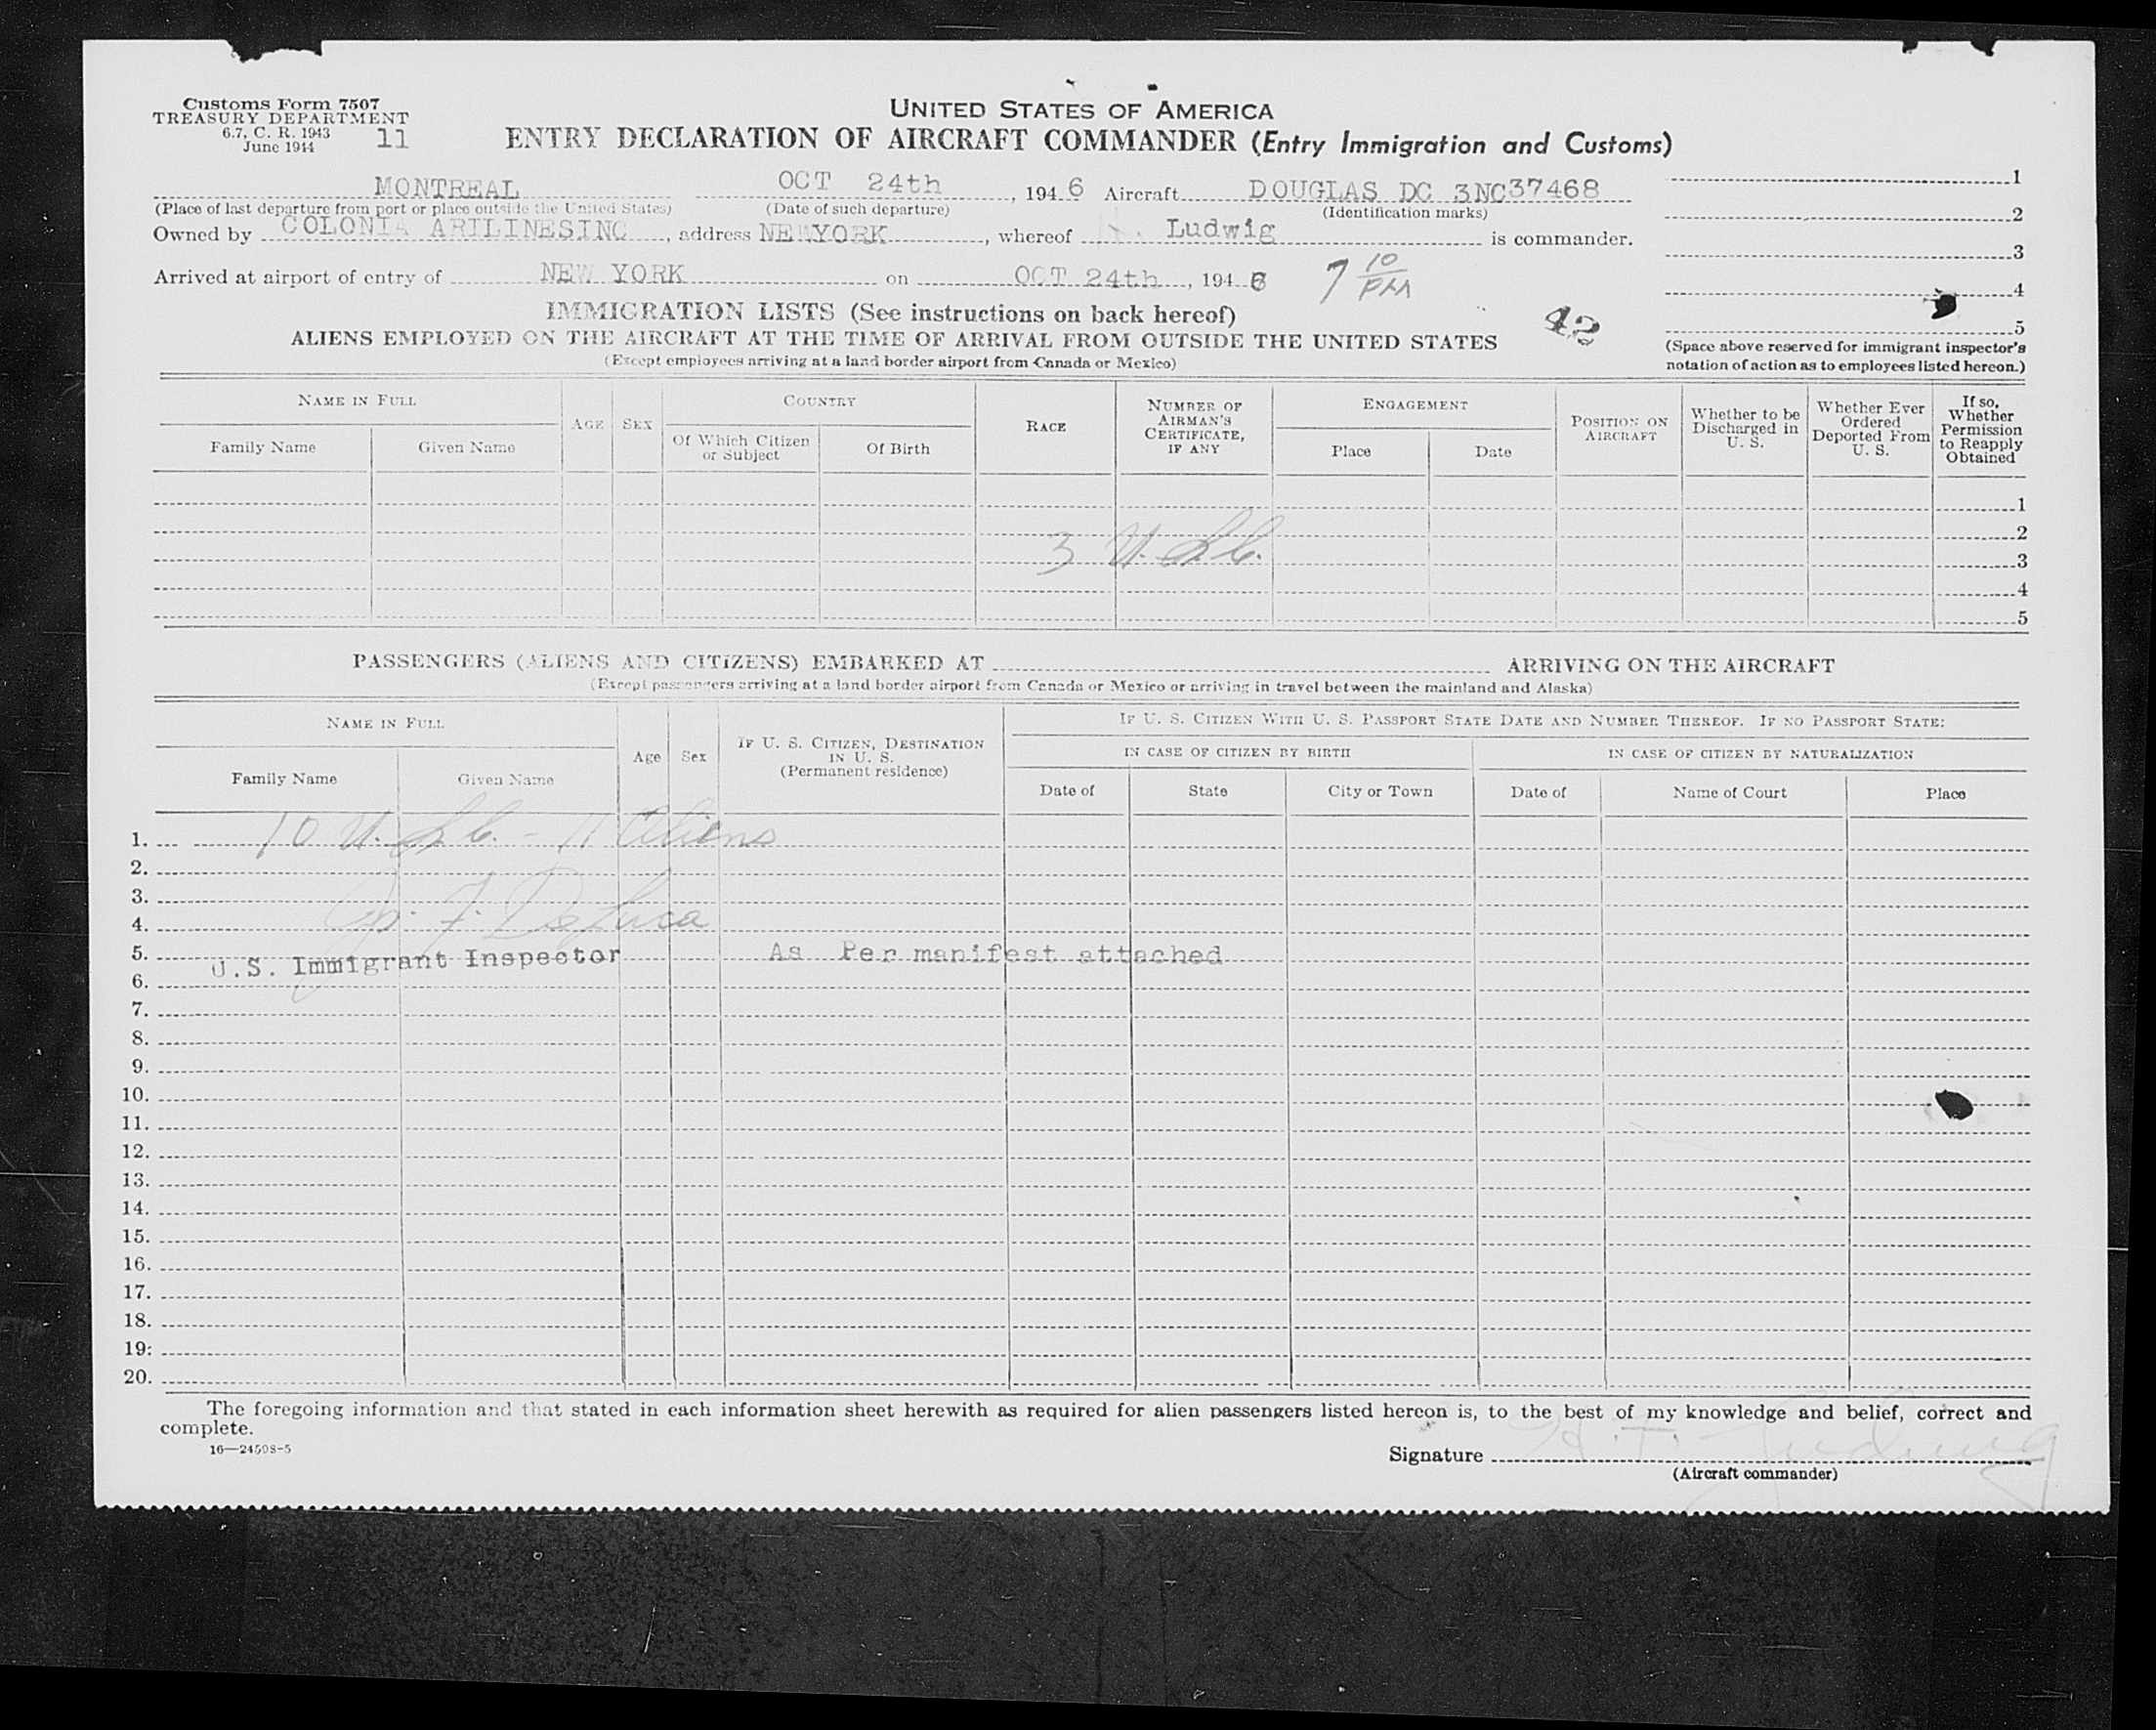 Customs Form 7507
TREASURY DEPARTMENT
6.7, C. R. 1943
June 1944
11
UNITED STATES OF AMERICA
ENTRY DECLARATION OF AIRCRAFT COMMANDER (Entry Immigration and Customs)
MONTREAL OCT 24th, 1946 Aircraft DOUGLAS DC 3NC37468
(Place of last departure from port or place outside the United States) (Date of such departure) (Identification marks)
Owned by COLONIA ARILINESINC, address NEWYORK, whereof Ludwig is commander.
Arrived at airport of entry of NEW YORK on OCT 24th, 1946 7 10 PM
1
2
3
4
5
(Space above reserved for immigrant inspector's
notation of action as to employees listed hereon.)
IMMIGRATION LISTS (See instructions on back hereof)
42
ALIENS EMPLOYED ON THE AIRCRAFT AT THE TIME OF ARRIVAL FROM OUTSIDE THE UNITED STATES
(Except employees arriving at a land border airport from Canada or Mexico)
NAME IN FULL
Family Name Given Name
AGE SEX
COUNTRY
Of Which Citizen
or Subject
Of Birth
RACE
NUMBER OF
AIRMAN'S
CERTIFICATE,
IF ANY
ENGAGEMENT
Place Date
POSITION ON
AIRCRAFT
Whether to be
Discharged in
U. S.
Whether Ever
Ordered
Deported From
U. S.
If so,
Whether
Permission
to Reapply
Obtained
1
2
3 U.S.C. 3
4
5
PASSENGERS (ALIENS AND CITIZENS) EMBARKED AT ARRIVING ON THE AIRCRAFT
(Except passengers arriving at a land border airport from Canada or Mexico or arriving in travel between the mainland and Alaska)
NAME IN FULL
Family Name Given Name
Age Sex
IF U. S. CITIZEN, DESTINATION
IN U. S.
(Permanent residence)
IF U. S. CITIZEN WITH U. S. PASSPORT STATE DATE AND NUMBER THEREOF. IF NO PASSPORT STATE:
IN CASE OF CITIZEN BY BIRTH IN CASE OF CITIZEN BY NATURALIZATION
Date of State City or Town Date of Name of Court Place
1. 10 U.S.C. - 11 Aliens
2.
3.
4. F. DeLuca
5. U.S. Immigrant Inspector As Per manifest attached
6.
7.
8.
9.
10.
11.
12.
13.
14.
15.
16.
17.
18.
19.
20.
The foregoing information and that stated in each information sheet herewith as required for alien passengers listed hereon is, to the best of my knowledge and belief, correct and
complete.
16—24598-5
Signature H. T. Ludwig
(Aircraft commander)